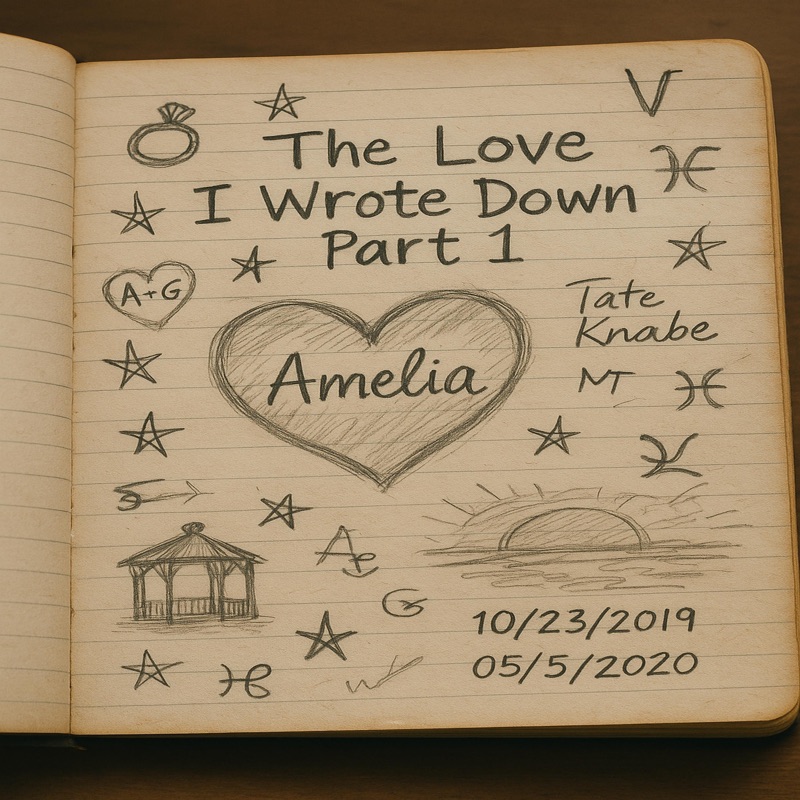 V
The Love
I Wrote Down
Part 1
A+G
Tate
Knabe
Amelia
MT
G
10/23/2019
05/5/2020